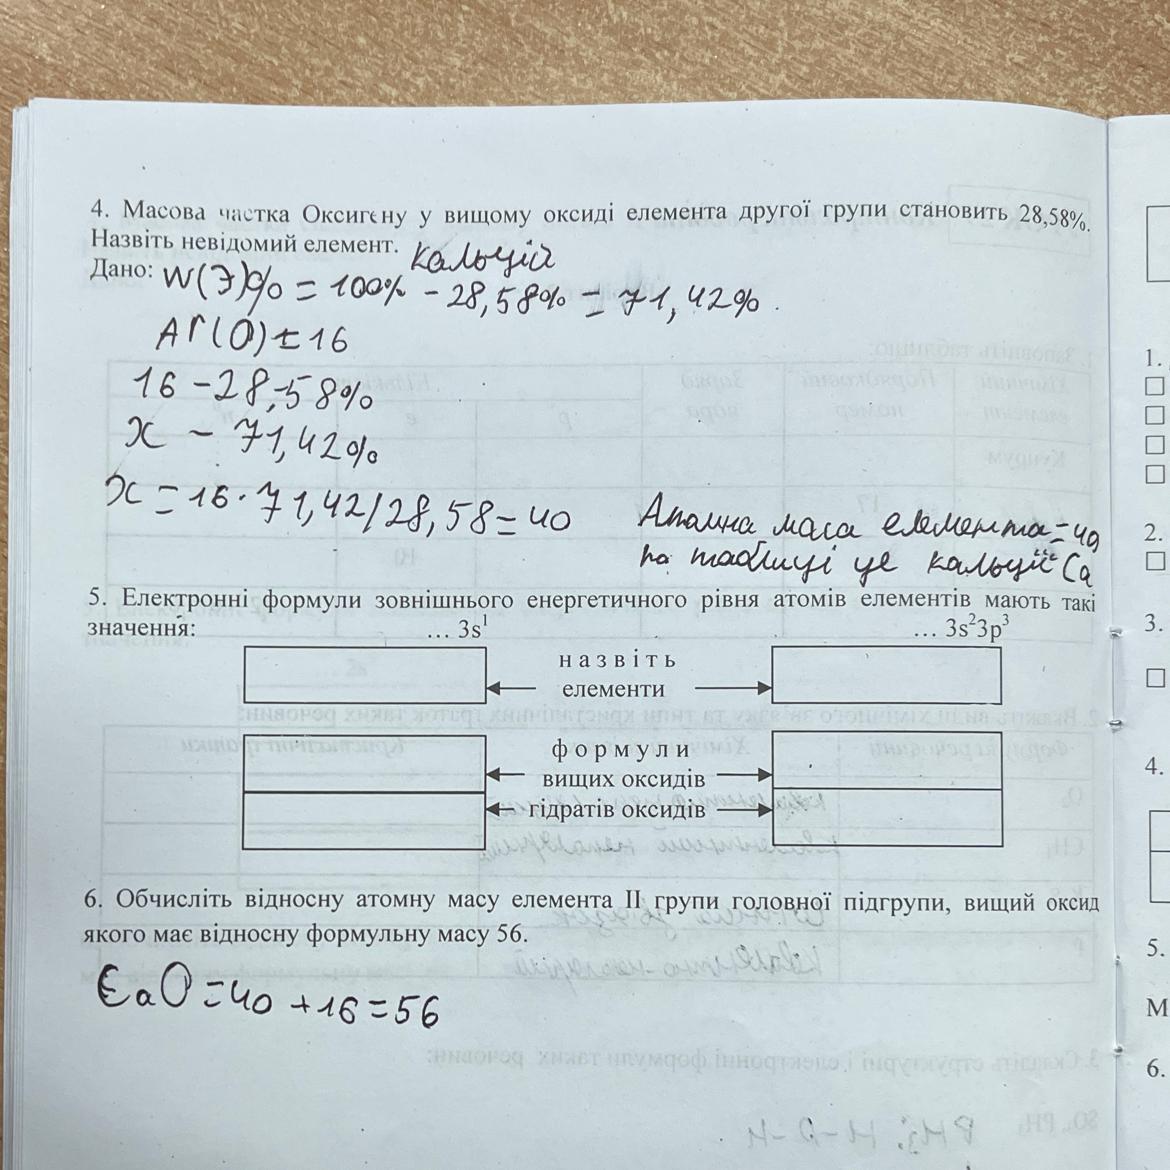 4. Масова частка Оксигену у вищому оксиді елемента другої групи становить 28,58%.
Назвіть невідомий елемент. кальцій
Дано: W(Э)% = 100% - 28,58% = 71,42%.
Ar(O) = 16
16 - 28,58%
x - 71,42%
x = 16 · 71,42/28,58 = 40
Атомна маса елемента = 40,
по таблиці це кальцій Ca
5. Електронні формули зовнішнього енергетичного рівня атомів елементів мають такі
значення: ... 3s¹ ... 3s²3p³
назвіть
елементи
формули
вищих оксидів
гідратів оксидів
6. Обчисліть відносну атомну масу елемента II групи головної підгрупи, вищий оксид
якого має відносну формульну масу 56.
CaO = 40 + 16 = 56
1.
2.
3.
4.
5.
М
6.